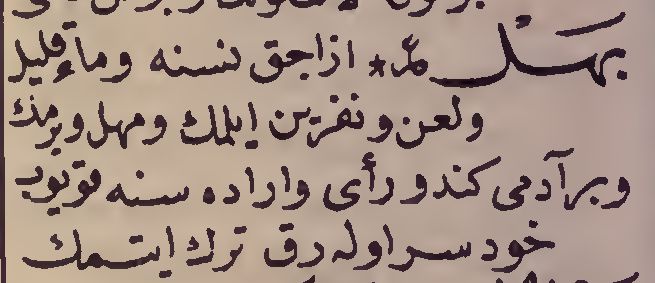 بهل * ازاجق نسنه وماء قليل
ولعن ونفرين ايلمك ومهل ويرمك
وبر آدمى كندو رأى واراده سنه قويوب
خود سر اوله رق ترك ايتمك